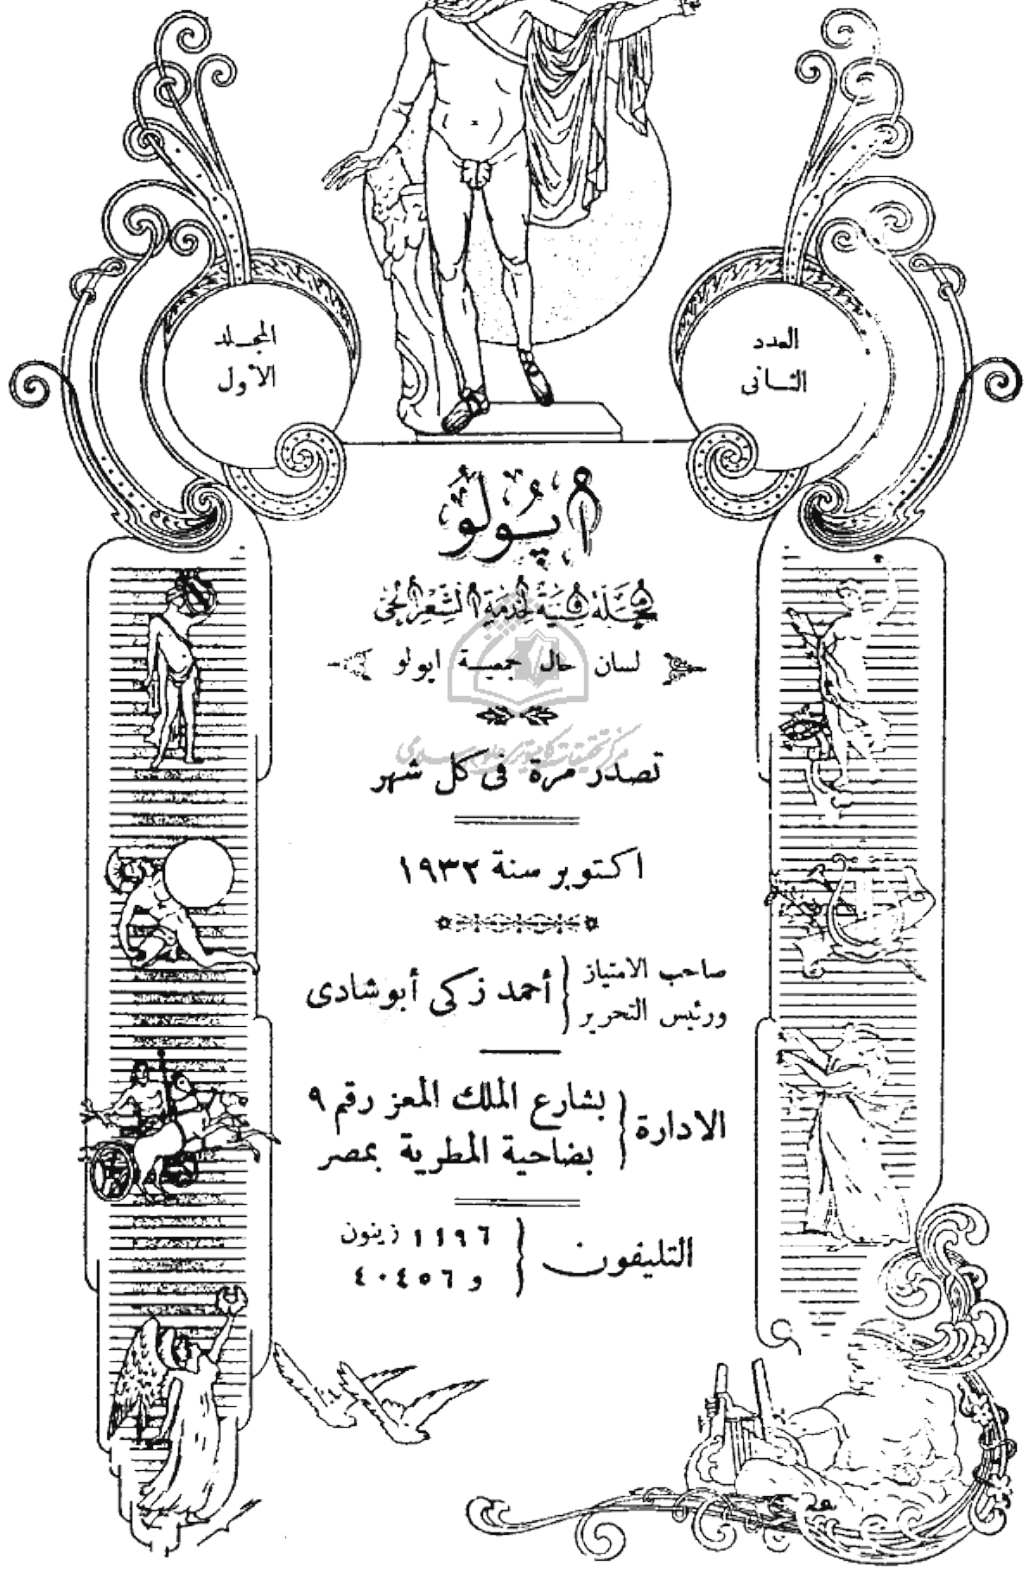 العدد
الثاني
المجلد
الأول
أپولو
مجلة فنية لخدمة الشعر الحي
لسان حال جمعية ابولو
مركز تحقيقات كامپيوترى علوم اسلامى
تصدر مرة فى كل شهر
اكتوبر سنة ١٩٣٢
صاحب الامتياز
ورئيس التحرير
أحمد زكى أبو شادى
الادارة
بشارع الملك المعز رقم ٩
بضاحية المطرية بمصر
التليفون
١١٩٦ زيتون
و ٤٠٤٥٦